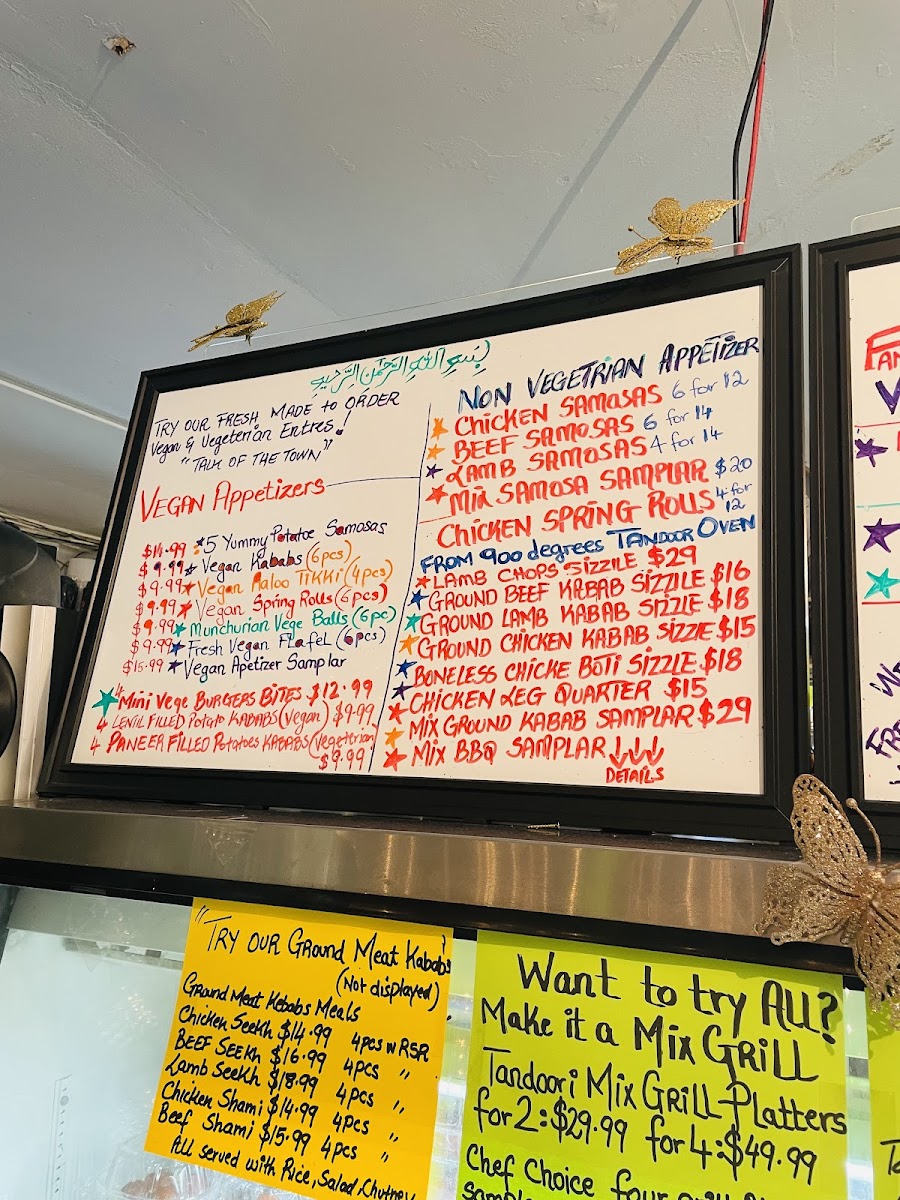 بِسْمِ اللهِ الرَّحْمٰنِ الرَّحِيمِ
TRY OUR FRESH MADE to ORDER
Vegan & Vegeterian Entres!
"TALK OF THE TOWN"
VEGAN Appetizers
$14.99 5 Yummy Potatoe Samosas
$9.99 Vegan Kababs (6pcs)
$9.99 Vegan Aaloo TiKKi (4pcs)
$9.99 Vegan Spring Rolls (6pcs)
$9.99 Munchurian Vege Balls (6pc)
$9.99 Fresh Vegan FLafel (6pcs)
$15.99 Vegan Apetizer Samplar
4 Mini Vege BURGERS BiTES $12.99
4 LENTIL FILLED Potato KABABS (vegan) $9.99
4 PANEER FILLED Potatoes KABABS (Vegeterian)
$9.99
NON VEGETRIAN APPETIZER
CHICKEN SAMOSAS 6 for 12
BEEF SAMOSAS 6 for 14
LAMB SAMOSAS 4 for 14
MIX SAMOSA SAMPLAR $20
CHICKEN SPRING ROLLS 4 for 12
FROM 900 degrees TANDOOR OVEN
LAMB CHOPS SIZZILE $29
GROUND BEEF KABAB SIZZILE $16
GROUND LAMB KABAB SIZZLE $18
GROUND CHICKEN KABAB SIZZIE $15
BONELESS CHICKE BOTI SIZZLE $18
CHICKEN LEG QUARTER $15
MIX GROUND KABAB SAMPLAR $29
MIX BBQ SAMPLAR
DETAILS
"TRY OUR Ground Meat Kababs"
(Not displayed)
Ground Meat Kebabs Meals
Chicken Seekh $14.99 4pcs w RSR
BEEF SEEKh $16.99 4pcs "
Lamb Seekh $18.99 4pcs "
Chicken Shami $14.99 4pcs "
Beef Shami $15.99 4pcs "
All served with Rice, Salad, Chutney
Want to try ALL?
Make it a Mix GRiLL
Tandoori Mix GRiLL Platters
for 2: $29.99 for 4: $49.99
Chef Choice four